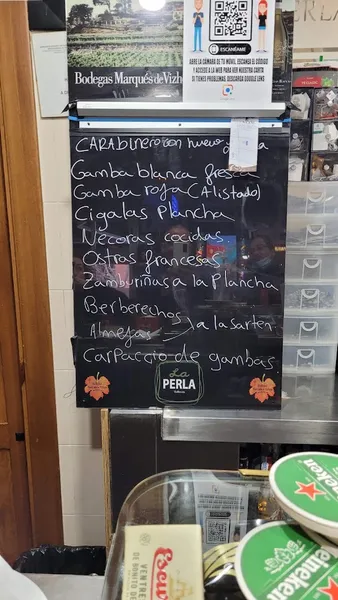 Bodegas Marqués de Vizh
ESCANÉAME
ABRE LA CÁMARA DE TU MÓVIL, ESCANEA EL CÓDIGO
Y ACCEDE A LA WEB PARA VER NUESTRA CARTA
SI TIENES PROBLEMAS, DESCARGA GOOGLE LENS
CARABINERO con huevo
Gamba blanca fresca
Gamba roja (Alistado)
Cigalas Plancha
Necoras cocidas
Ostras francesas
Zamburiñas a la Plancha
Berberechos
Almejas
a la sarten
Carpaccio de gambas
La
PERLA
VENTRE
DE BONITO DE
Heineken
Heineken